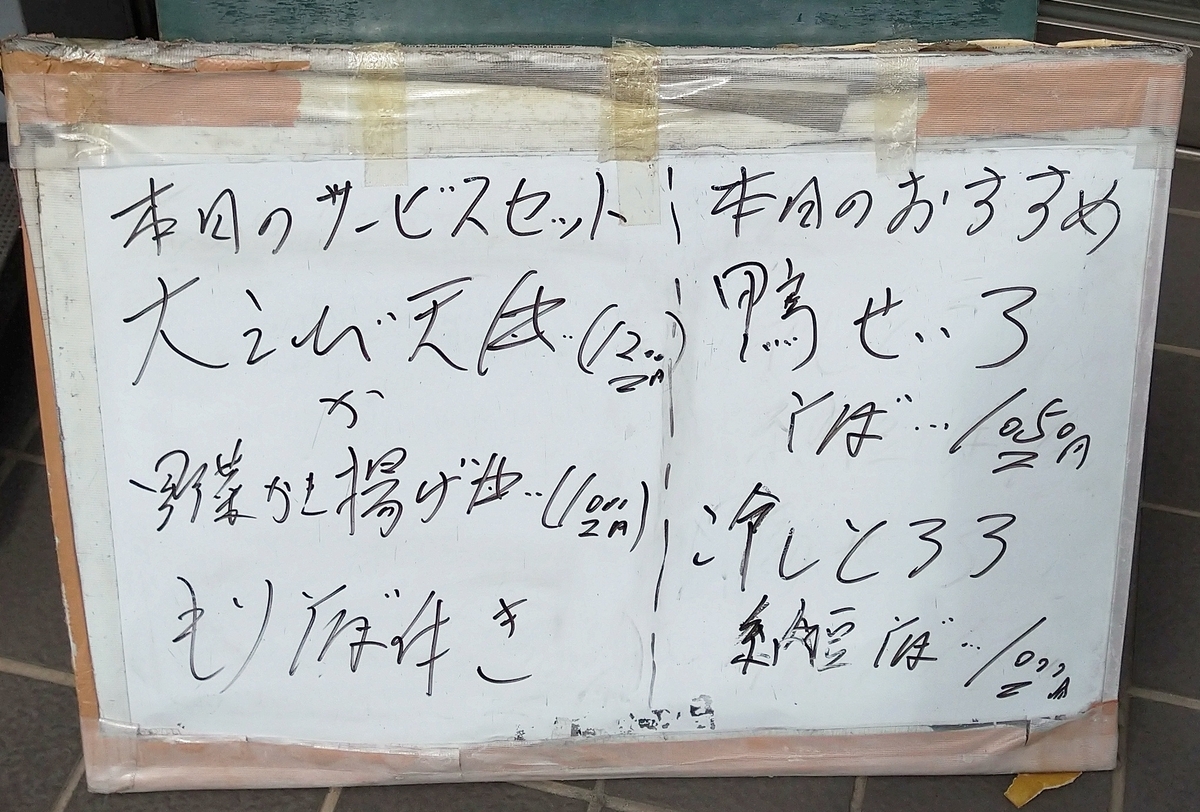 本日のサービスセット
大えび天丼…(1200円)
か
野菜かき揚げ丼…(1000円)
もりそば付き
本日のおすすめ
鴨せいろ
そば…1050円
冷しとろろ
納豆そば…1000円